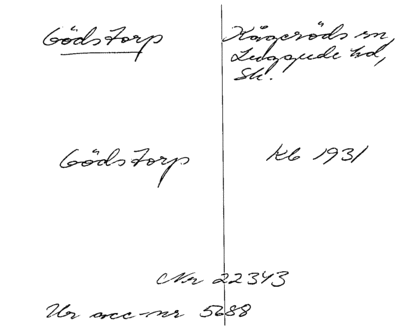 Gödstorp
Kågeröds sn,
Luggude hd,
Sk.
Gödstorp
Kb 1931
Nr 22343
Ur acc-nr 5688